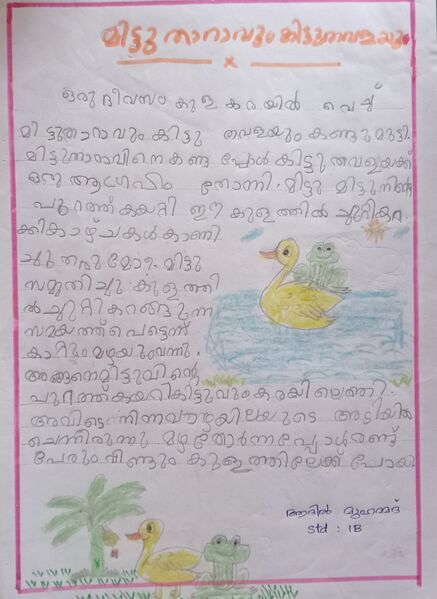 മിട്ടു താറാവും കിട്ടുതവളയും
x
ഒരു ദിവസം കുള കരയിൽ വെച്ച്
മിട്ടുതാറാവും കിട്ടു തവളയും കണ്ടുമുട്ടി.
മിട്ടുതാറാവിനെ കണ്ട പ്പോൾ കിട്ടു തവളയക്ക്
ഒരു ആഗ്രഹം തോന്നി. മിട്ടു മിട്ടുനിന്റെ
പുറത്ത് കയറ്റി ഈ കുളത്തിൽ ചുറ്റിക്കറ
ക്കികാഴ്ചകൾകാണി
ച്ചു തരുമോ? മിട്ടു
സമ്മതിച്ചു. കുളത്തി
ൽചുറ്റികറങ്ങുന്ന
സമയത്ത്പെട്ടെന്ന്
കാറ്റുംമഴയുംവന്നു.
അങ്ങനെമിട്ടുവിന്റെ
പുറത്ത്കയറികിട്ടുവുംകരയിലെത്തി.
അവിടെനിന്നവാഴയിലയുടെ അടിയിൽ
ചെന്നിരുന്നു മഴതോർന്നപ്പോൾരണ്ട്
പേരുംവീണ്ടും കുളത്തിലേക്ക് പോയി
ആദിൽ മുഹമ്മദ്
Std : 1B